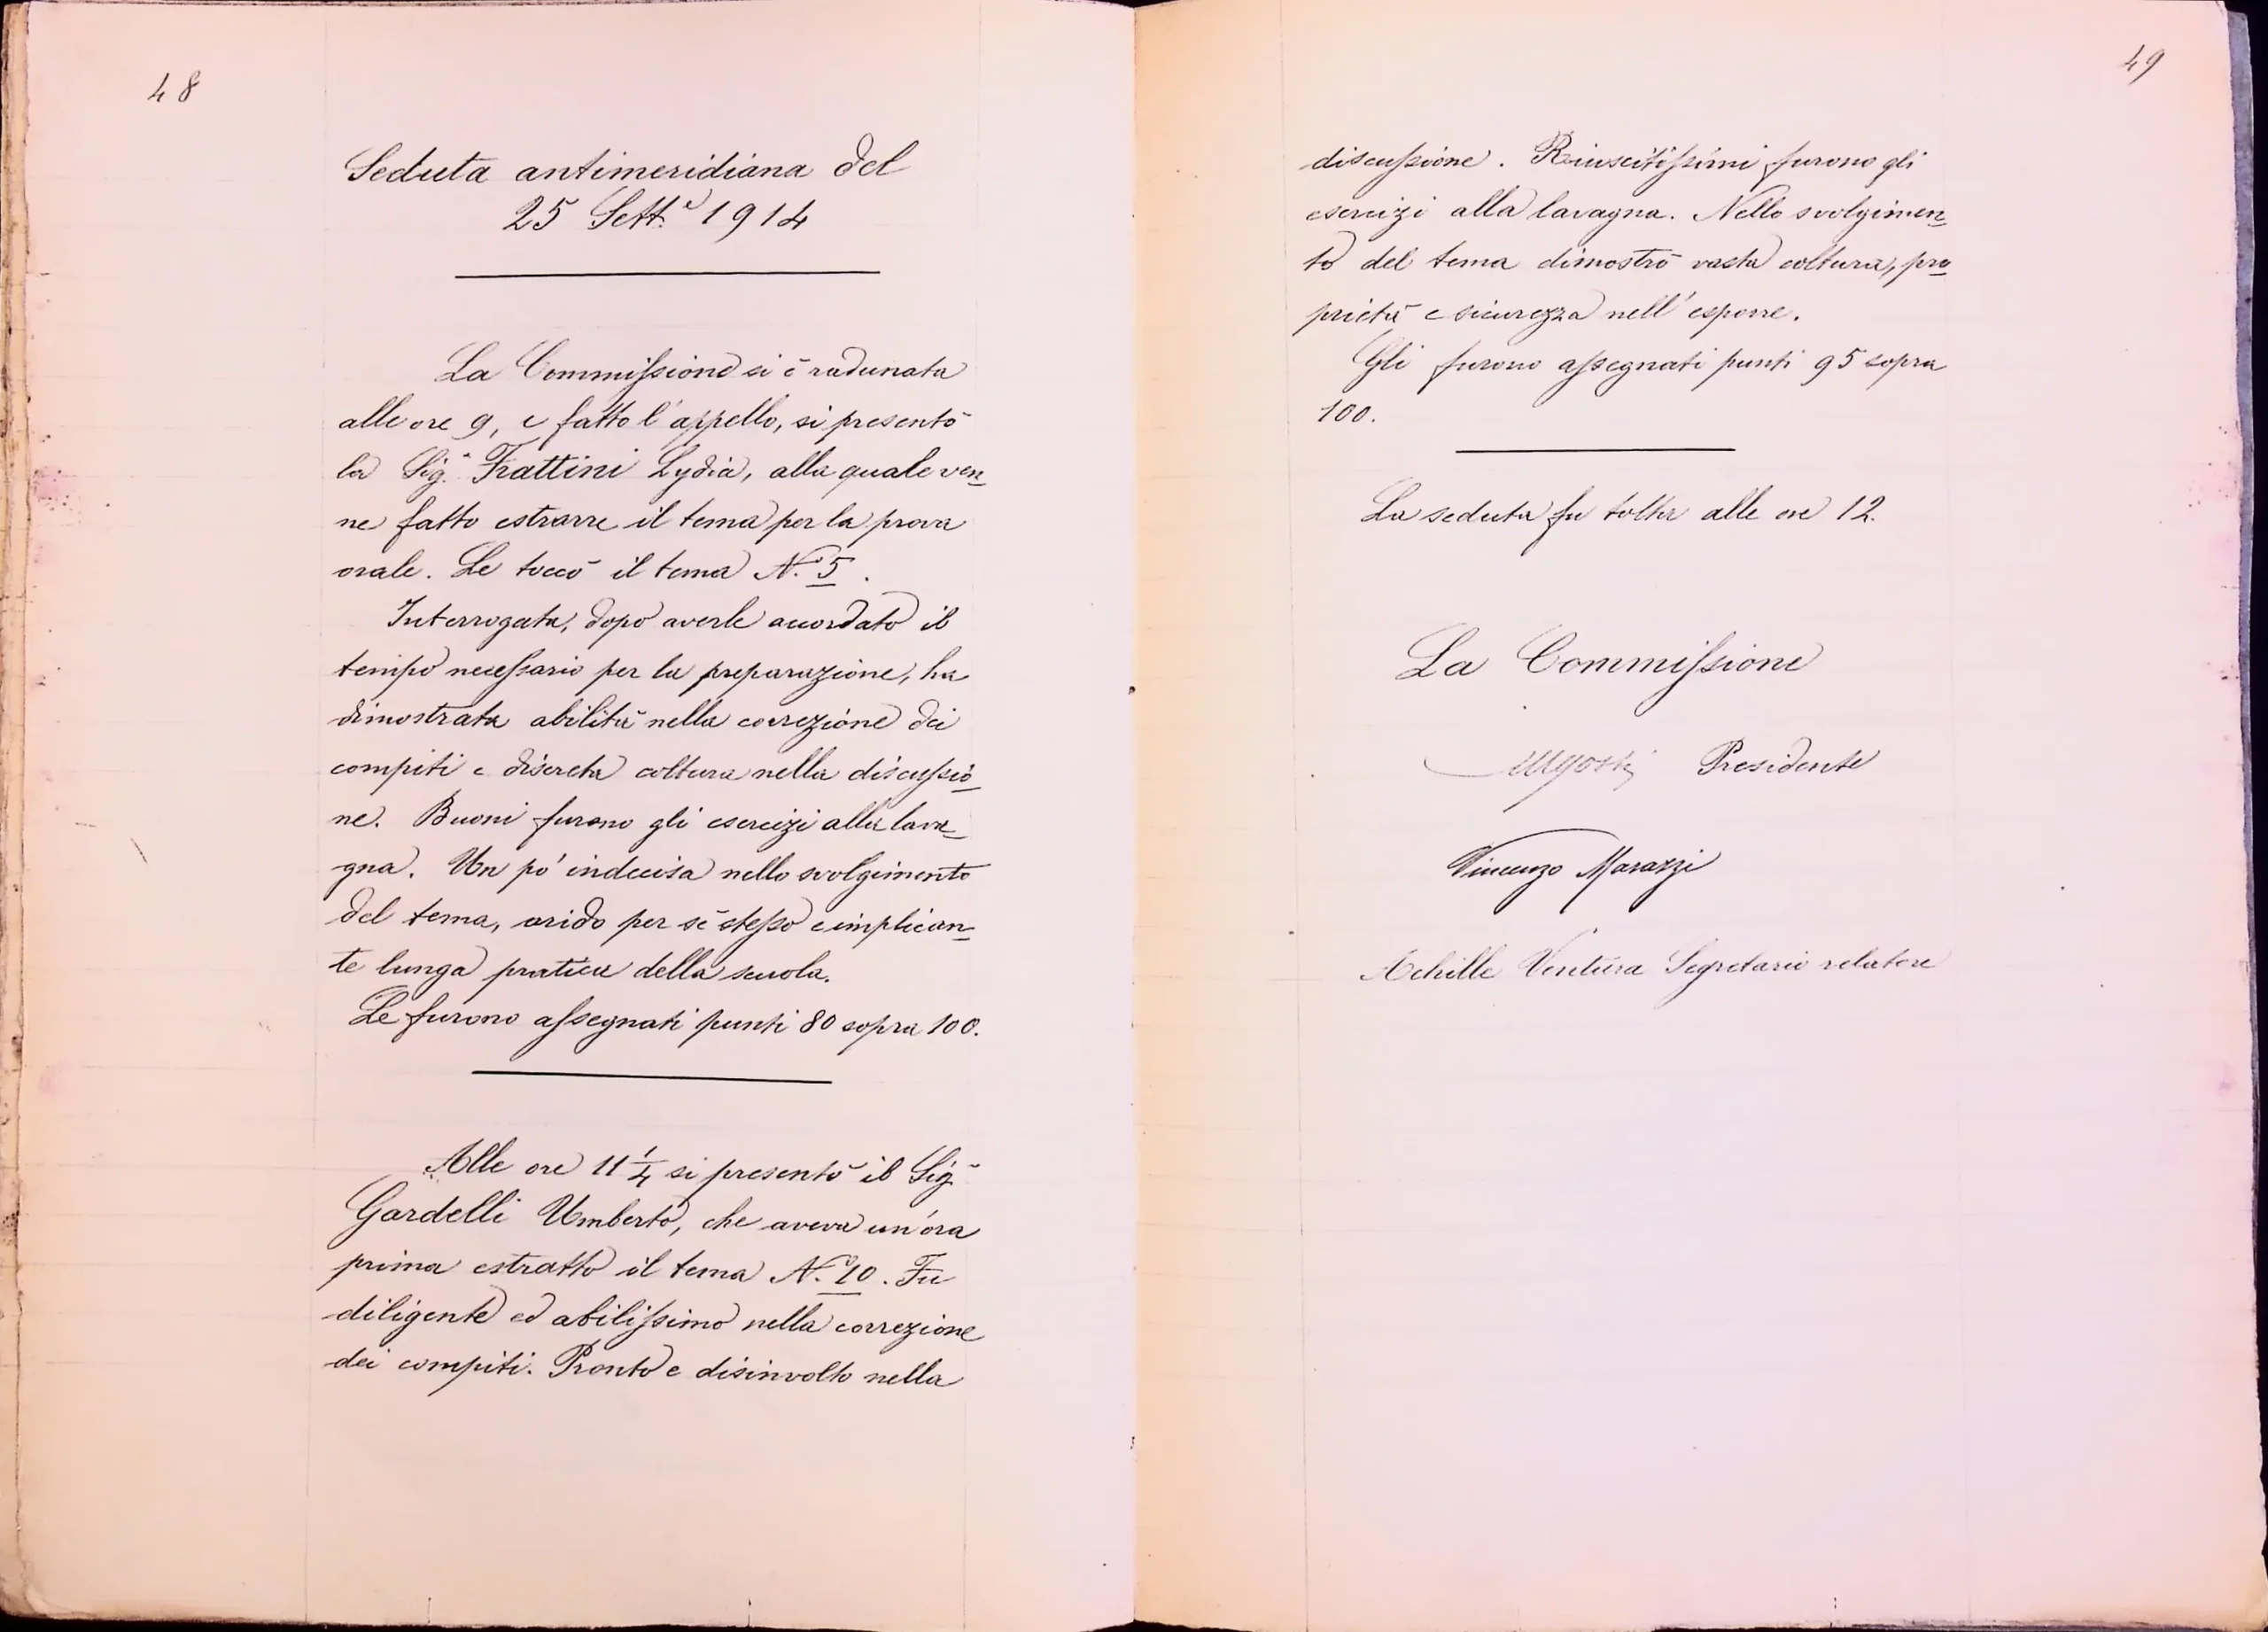 48
Seduta antimeridiana del
25 Sett.e 1914
La Commissione si è radunata
alle ore 9, e fatto l'appello, si presentò
la Sig.a Frattini Lydia, alla quale ven=
ne fatto estrarre il tema per la prova
orale. Le toccò il tema N.o 5.
Interrogata, dopo averle accordato il
tempo necessario per la preparazione, ha
dimostrata abilità nella correzione dei
compiti e discreta coltura nella discussio=
ne. Buoni furono gli esercizi alla lava=
gna. Un pò indecisa nello svolgimento
del tema, arido per sè stesso e implican=
te lunga pratica della scuola.
Le furono assegnati punti 80 sopra 100.
Alle ore 11 1/4 si presentò il Sig.
Gardelli Umberto, che aveva un'ora
prima estratto il tema N.o 10. Fu
diligente ed abilissimo nella correzione
dei compiti. Pronto e disinvolto nella
49
discussione. Riuscitissimi furono gli
esercizi alla lavagna. Nello svolgimen=
to del tema dimostrò vasta coltura, pro=
prietà e sicurezza nell'esporre.
Gli furono assegnati punti 95 sopra
100.
La seduta fu tolta alle ore 12.
La Commissione
Presidente
Vincenzo Marazzi
Achille Ventura Segretario relatore